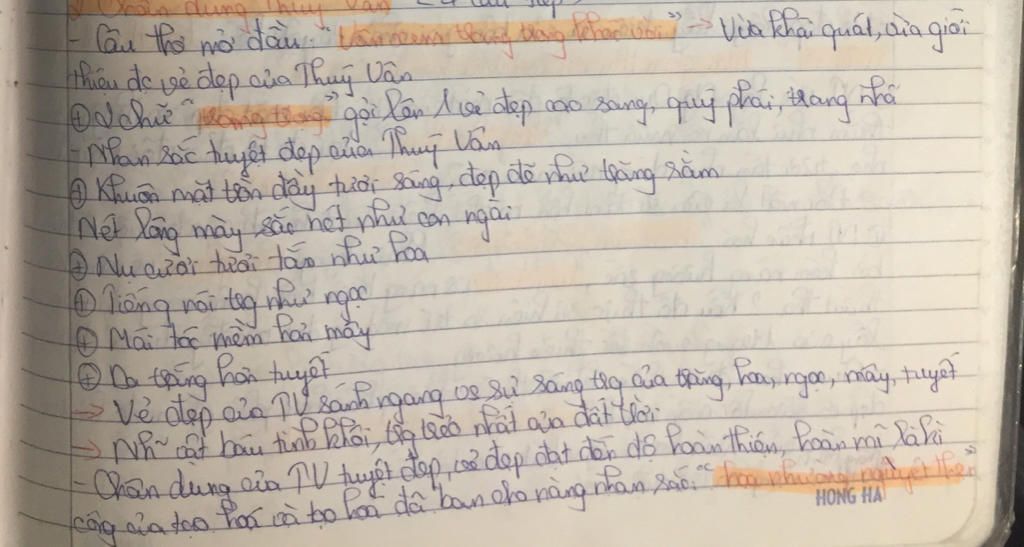 Chân dung Thúy Vân
- Câu thơ mở đầu: "Vân xem trang trọng khác vời" → Vừa khái quát, vừa giới
thiệu đc vẻ đẹp của Thuý Vân
⊕ chữ "trang trọng" gợi lên 1 vẻ đẹp cao sang, quý phái, trang nhã
- Nhan sắc tuyệt đẹp của Thuý Vân
⊕ Khuôn mặt tròn đầy tươi sáng, đẹp đẽ như trăng rằm
Nét lông mày sắc nét như con ngài
⊕ Nụ cười tươi tắn như hoa
⊕ Tiếng nói trg như ngọc
⊕ Mái tóc mềm hơn mây
⊕ Da trắng hơn tuyết
→ Vẻ đẹp của TV sánh ngang vs sự sáng trg của trăng, hoa, ngọc, mây, tuyết
→ Nh~ cật báu tinh khôi, trg trẻo nhất của đất trời.
- Chân dung của TV tuyệt đẹp, vẻ đẹp đạt đến độ hoàn thiện, hoàn mĩ là kì
công của tạo hoá và tạo hoá đã ban cho nàng nhan sắc: "hoa nhường nguyệt thẹn"
HONG HA